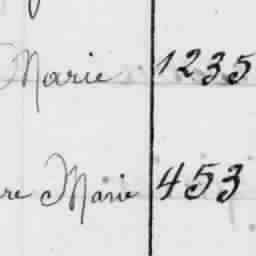 Marie 1235
re Marie 453